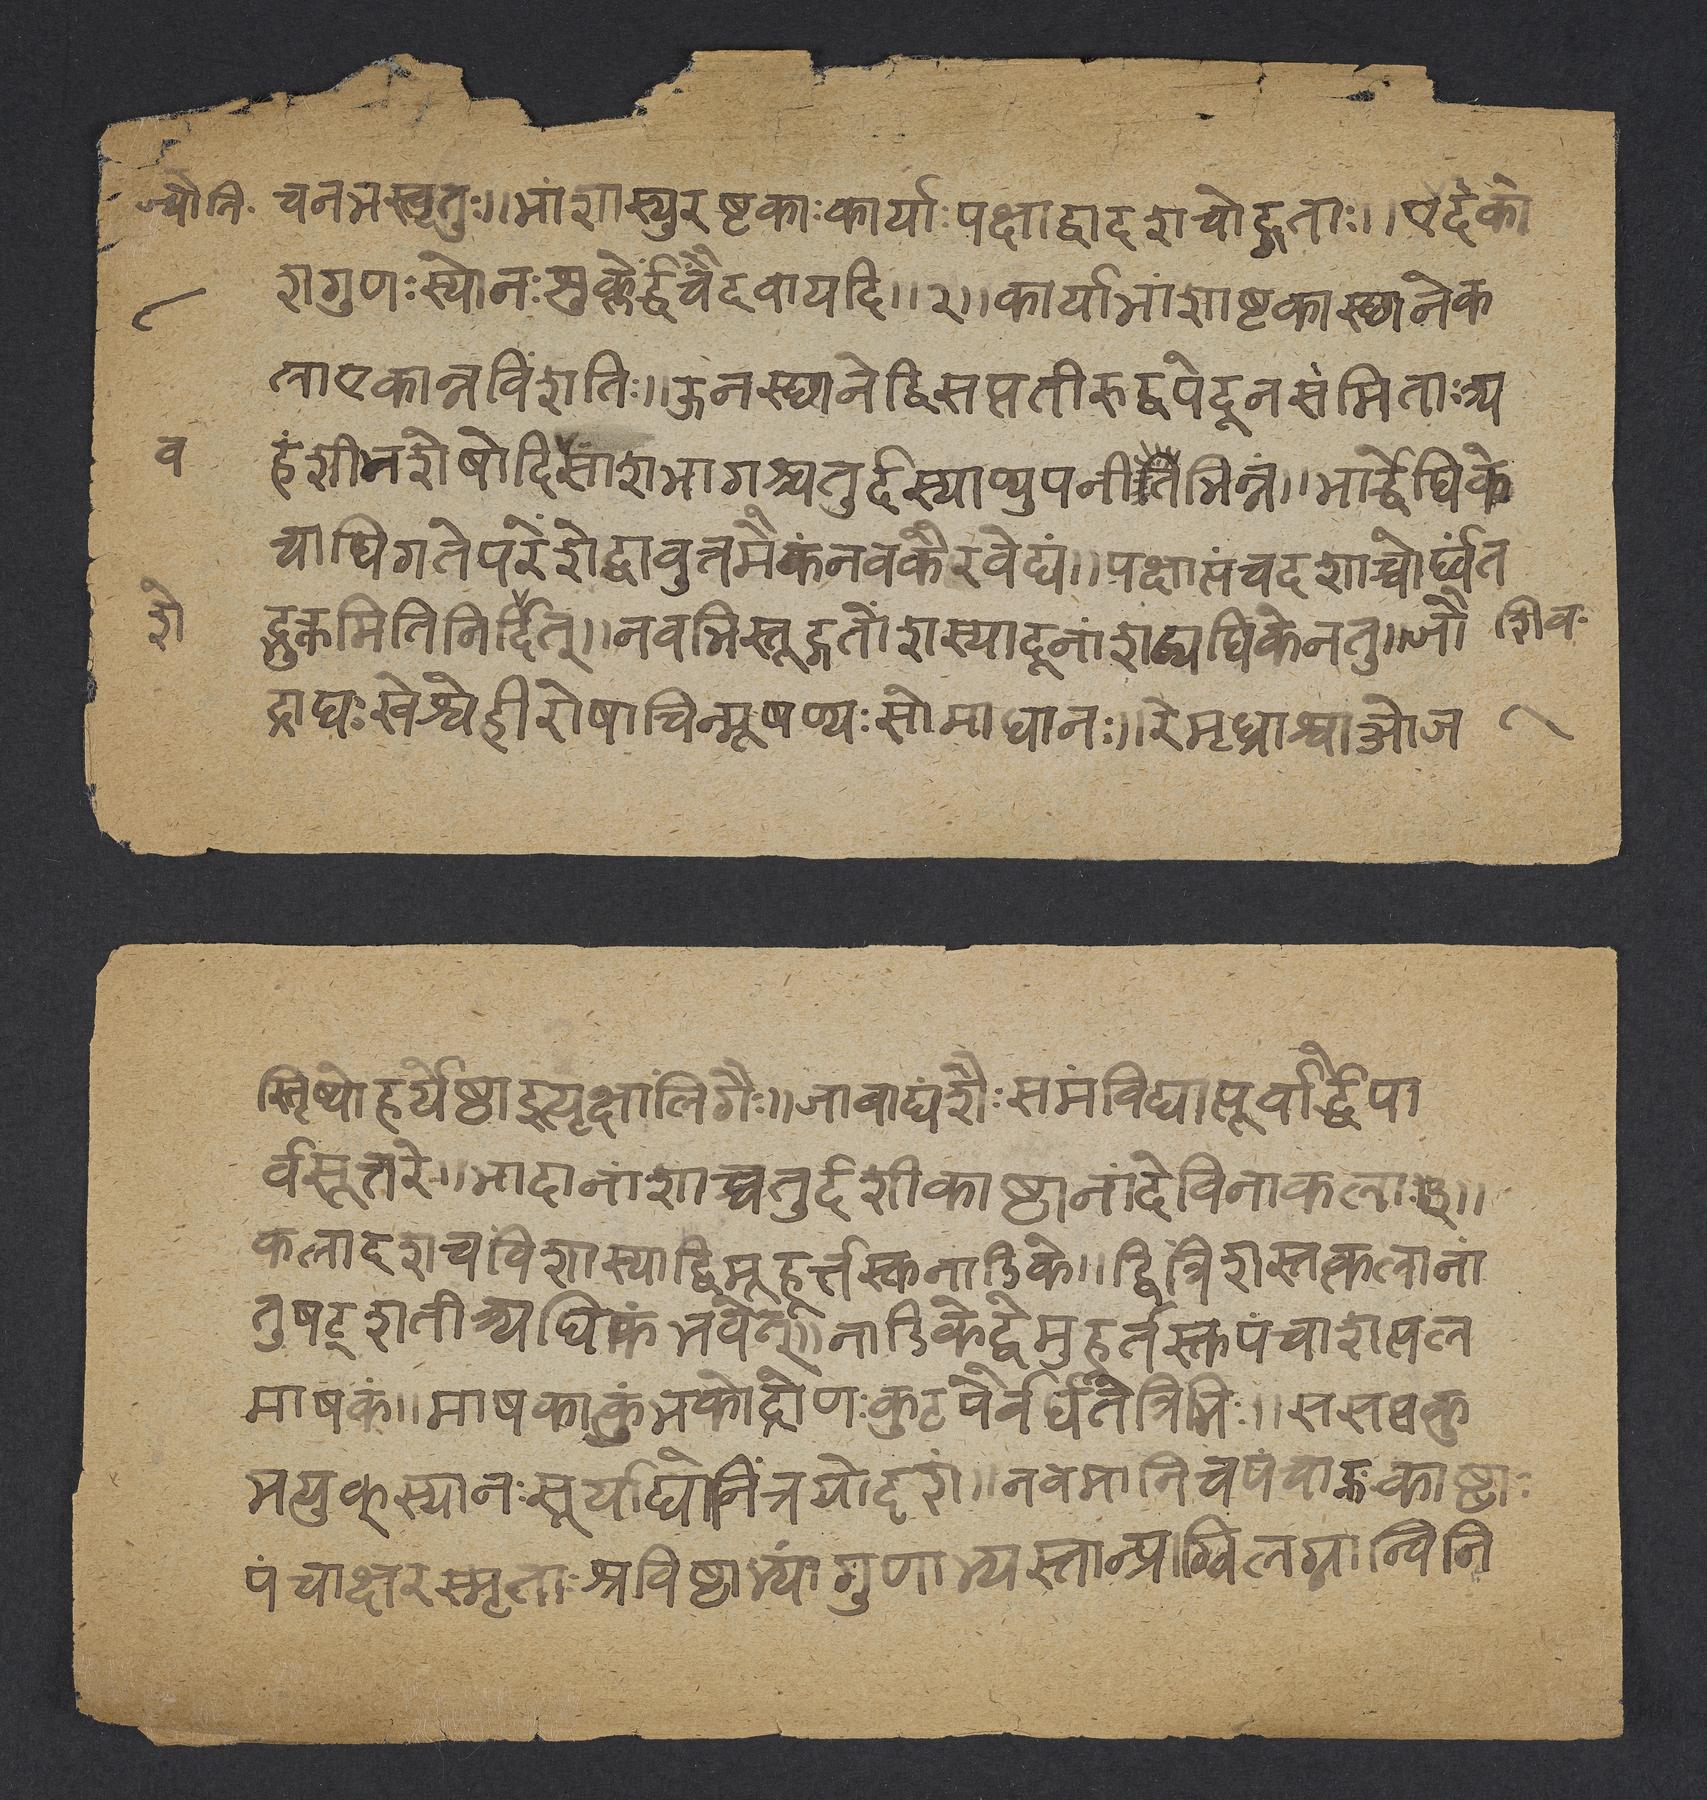 ज्योति. चनभस्त्वृतुः।। भांशास्युरष्टकाः कार्याः पक्षाद्वादशचोद्गताः।। एर्दको
शगुणःस्योनःशुक्लेर्द्धंचैंदवायदि।।२।।कार्याभांशाष्टकास्छानेक
लाएकान्नविंशतिः।।ऊनस्छानेद्विसप्ततीरुद्वपेदूनसंमिताःत्र्य
व हंशीनशेषोदिसांशभागश्चतुर्दस्याप्युपनीतभिन्नं।।भार्द्धेधिके
चाधिगतेपरेंशेद्वावुत्तमैकंनवकैरवेद्यं।।पक्षात्पंचदशाच्चोर्घ्वंत
शे द्भुक्तमितिनिर्दित्।।नवभिस्तूद्गतोंशस्यादूनांशद्व्यधिकेनतु।।जौ शिव.
द्राघःखेश्वेहीरोषाचिन्मूषण्यःसोमाधानः।।रेमृघ्राश्वाओज
स्तृष्योहर्येष्ठाइत्यृक्षालिंगैः।।जाबाद्यंशैः समंविद्यात्पूर्वार्द्धेपा
र्वसूत्तरे।।भादानांशाच्चतुर्दशीकाष्ठानांदेविनाकलाः।।
कलादशचविंशास्याद्विमूहर्त्तस्कनाडिके।।द्वित्रिंशस्तत्कलानां
तुषट्शतीत्र्यधिकं भवेत्।।नाडिकेद्वेमुहूर्तस्कपंचाशत्पल
माषकं।।माषकात्कुंभकोद्रोणःकुटपैर्वर्घतेत्रिभिः।।ससप्तकु
भयुक्स्यानःसूर्याघोनिंत्रयोदशं।।नवमानिचपंचाह्नःकाष्टाः
पंचाक्षरस्मृताःश्रविष्ठाभ्यांगुणाभ्यस्तान्प्राग्विलग्नान्विनि